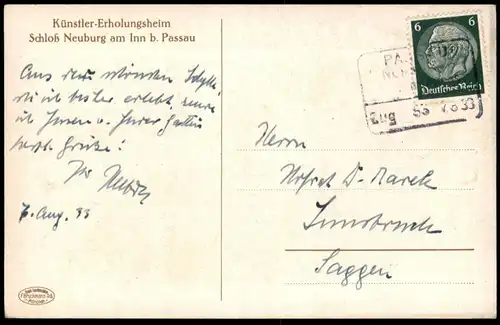 Künstler-Erholungsheim
Schloß Neuburg am Inn b. Passau
Aus der schönsten Idylle,
die ich bisher erlebt, sende
ich Ihnen u. Ihrer Gattin
herzl. Grüße!
Ihr
7. Aug. 33
6 6
Deutsches Reich
PA
Zug
7 8 33
Herrn
Hofrat Dr. Marek
Innsbruck
Saggen